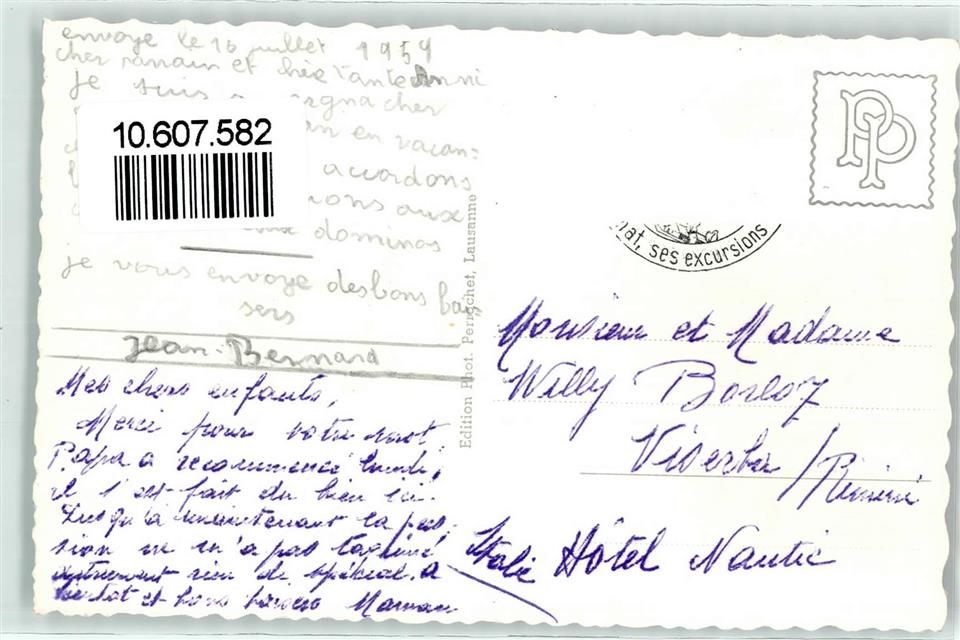 envoye le 16 juillet 1959
cher et tante Anni
je suis
en vacan-
accordons
ions aux
dominos
je vous envoye des bons bai
sers
Jean-Bernard
10.607.582
Mes chers enfants,
Merci pour votre mot.
Papa a recommencé lundi,
il s'est fait du bien ici.
Jusqu'à maintenant la pen-
sion ne m'a pas
autrement rien de spécial. A
bientôt et bons baisers Maman
Edition Phot. Perrochet, Lausanne
PP
nat, ses excursions
Monsieur et Madame
Willy Borloz
Viserba / Rimini
Hôtel Nautic
Italie